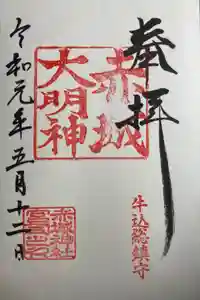 奉拝
牛込総鎮守
赤城
大明神
赤城神社
令和元年五月十二日